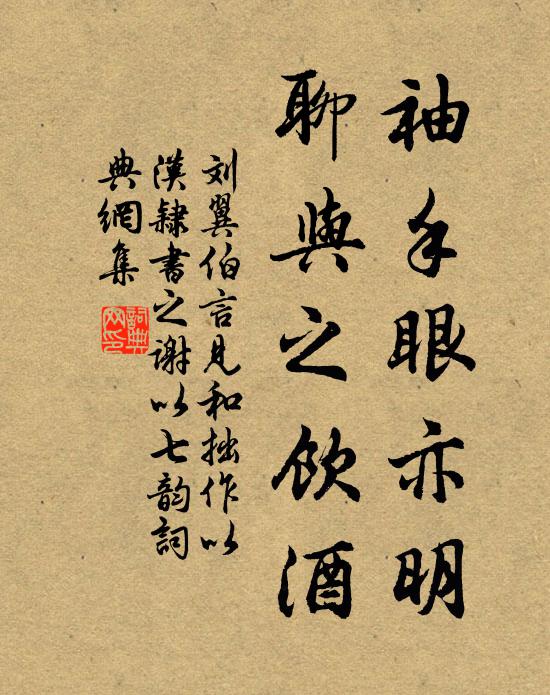 袖手眼亦明
聊與之飲酒
刘翼伯言見和拙作以
漢隸書之謝以七韵詞
典網集
詞典
网印